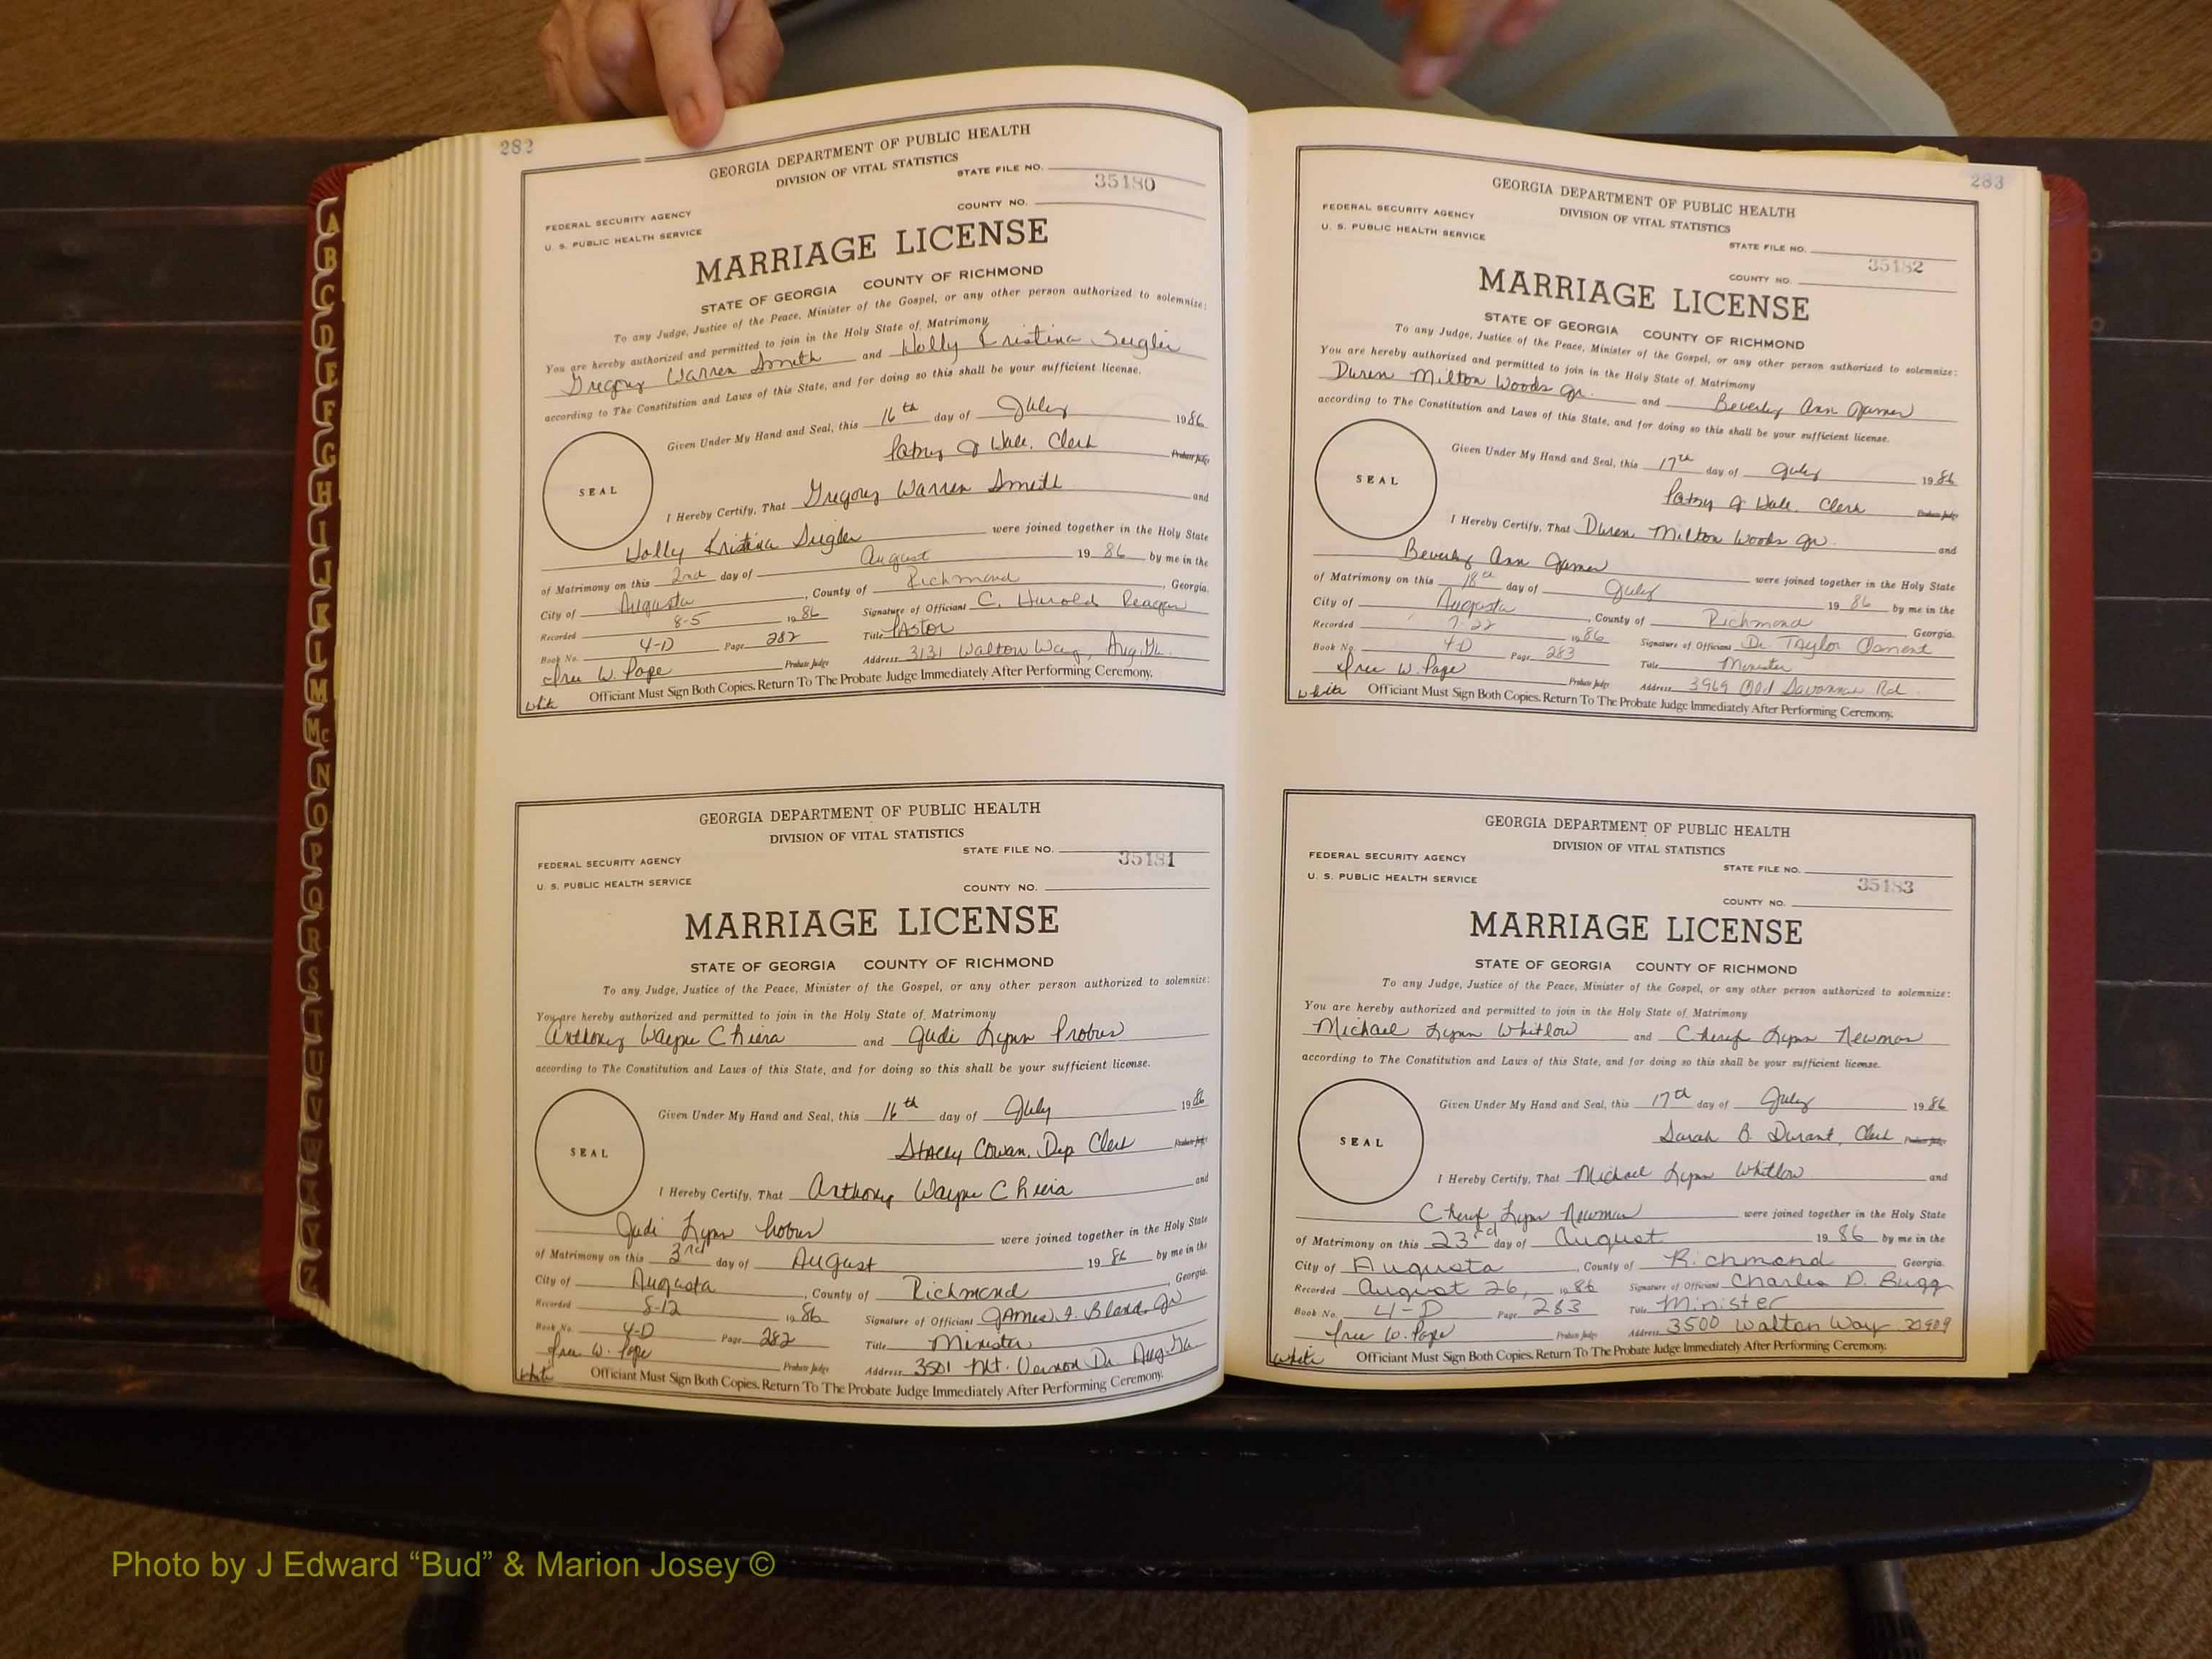 A
B
C
D
E
F
G
H
I
J
K
L
M
Mc
N
O
P
Q
R
S
T
U
V
Z
282
GEORGIA DEPARTMENT OF PUBLIC HEALTH
DIVISION OF VITAL STATISTICS
STATE FILE NO.
35180
FEDERAL SECURITY AGENCY
COUNTY NO.
U. S. PUBLIC HEALTH SERVICE
MARRIAGE LICENSE
STATE OF GEORGIA COUNTY OF RICHMOND
To any Judge, Justice of the Peace, Minister of the Gospel, or any other person authorized to solemnize:
You are hereby authorized and permitted to join in the Holy State of Matrimony
Gregory Warren Smith and Holly Kristina Seigler
according to The Constitution and Laws of this State, and for doing so this shall be your sufficient license.
Given Under My Hand and Seal, this 16th day of July 1986
Patsy J Wall. Clerk Probate Judge
SEAL
I Hereby Certify, That Gregory Warren Smith and
Holly Kristina Seigler were joined together in the Holy State
of Matrimony on this 2nd day of August 19 86 by me in the
City of Augusta, County of Richmond, Georgia.
Recorded 8-5 1986 Signature of Officiant C. Harold Reagan
Book No. 4-D Page 282 Title Pastor
W. Pope Probate Judge Address 3131 Walton Way, Aug. Ga.
White Officiant Must Sign Both Copies. Return To The Probate Judge Immediately After Performing Ceremony.
GEORGIA DEPARTMENT OF PUBLIC HEALTH
DIVISION OF VITAL STATISTICS
STATE FILE NO.
35181
FEDERAL SECURITY AGENCY
U. S. PUBLIC HEALTH SERVICE
COUNTY NO.
MARRIAGE LICENSE
STATE OF GEORGIA COUNTY OF RICHMOND
To any Judge, Justice of the Peace, Minister of the Gospel, or any other person authorized to solemnize:
You are hereby authorized and permitted to join in the Holy State of Matrimony
Anthony Wayne Chiera and Judi Lynn Probus
according to The Constitution and Laws of this State, and for doing so this shall be your sufficient license.
Given Under My Hand and Seal, this 16th day of July 1986
Stacey Cowan. Dep Clerk Probate Judge
SEAL
I Hereby Certify, That Anthony Wayne Chiera and
Judi Lynn Probus were joined together in the Holy State
of Matrimony on this 3rd day of August 19 86 by me in the
City of Augusta, County of Richmond, Georgia.
Recorded 8-12 1986 Signature of Officiant James F. Bland, Jr
Book No. 4-D Page 282 Title Minister
W. Pope Probate Judge Address 3501 Mt. Vernon Dr Aug. Ga
White Officiant Must Sign Both Copies. Return To The Probate Judge Immediately After Performing Ceremony.
283
GEORGIA DEPARTMENT OF PUBLIC HEALTH
DIVISION OF VITAL STATISTICS
FEDERAL SECURITY AGENCY
U. S. PUBLIC HEALTH SERVICE
STATE FILE NO.
35182
COUNTY NO.
MARRIAGE LICENSE
STATE OF GEORGIA COUNTY OF RICHMOND
To any Judge, Justice of the Peace, Minister of the Gospel, or any other person authorized to solemnize:
You are hereby authorized and permitted to join in the Holy State of Matrimony
Duren Milton Woods Jr. and Beverly Ann Garner
according to The Constitution and Laws of this State, and for doing so this shall be your sufficient license.
Given Under My Hand and Seal, this 17th day of July 1986
Patsy J Wall. Clerk Probate Judge
SEAL
I Hereby Certify, That Duren Milton Woods Jr. and
Beverly Ann Garner were joined together in the Holy State
of Matrimony on this 18th day of July 19 86 by me in the
City of Augusta, County of Richmond Georgia.
Recorded 7-22 1986 Signature of Officiant Dr. Taylor Clement
Book No. 4-D Page 283 Title Minister
W. Pope Probate Judge Address 3969 Old Savannah Rd.
White Officiant Must Sign Both Copies. Return To The Probate Judge Immediately After Performing Ceremony.
GEORGIA DEPARTMENT OF PUBLIC HEALTH
DIVISION OF VITAL STATISTICS
FEDERAL SECURITY AGENCY
STATE FILE NO.
U. S. PUBLIC HEALTH SERVICE
35183
COUNTY NO.
MARRIAGE LICENSE
STATE OF GEORGIA COUNTY OF RICHMOND
To any Judge, Justice of the Peace, Minister of the Gospel, or any other person authorized to solemnize:
You are hereby authorized and permitted to join in the Holy State of Matrimony
Michael Lynn Whitlow and Cheryl Lynn Newman
according to The Constitution and Laws of this State, and for doing so this shall be your sufficient license.
Given Under My Hand and Seal, this 17th day of July 1986
Sarah B. Durant, Clerk Probate Judge
SEAL
I Hereby Certify, That Michael Lynn Whitlow and
Cheryl Lynn Newman were joined together in the Holy State
of Matrimony on this 23rd day of August 19 86 by me in the
City of Augusta, County of Richmond Georgia.
Recorded August 26, 1986 Signature of Officiant Charles D. Bugg
Book No. 4-D Page 283 Title Minister
W. Pope Probate Judge Address 3500 Walton Way 30909
White Officiant Must Sign Both Copies. Return To The Probate Judge Immediately After Performing Ceremony.
Photo by J Edward “Bud” & Marion Josey ©